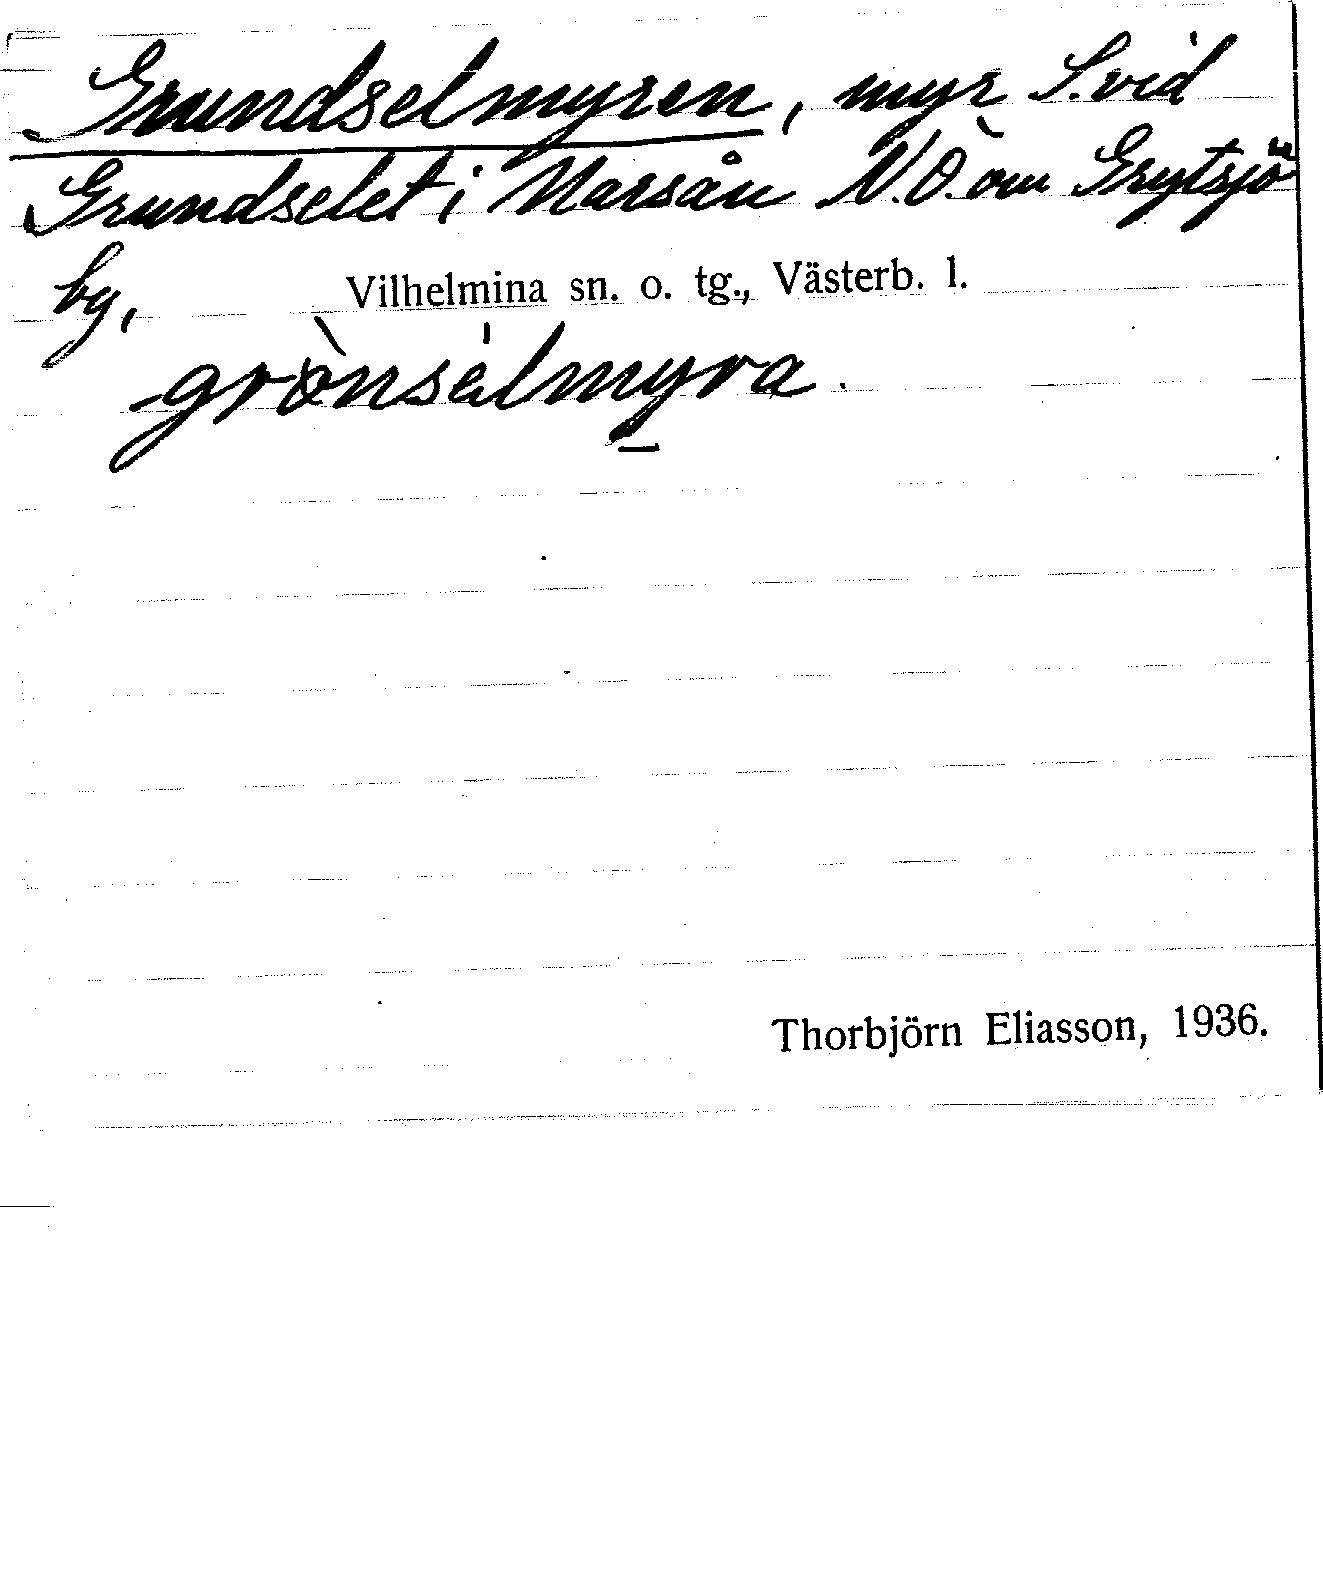 Grundselmyren, myr S. vid
Grundselet i Marsån N.O. om Grytsjö
by, Vilhelmina sn. o. tg., Västerb. l.
grònsélmyra.
Thorbjörn Eliasson, 1936.